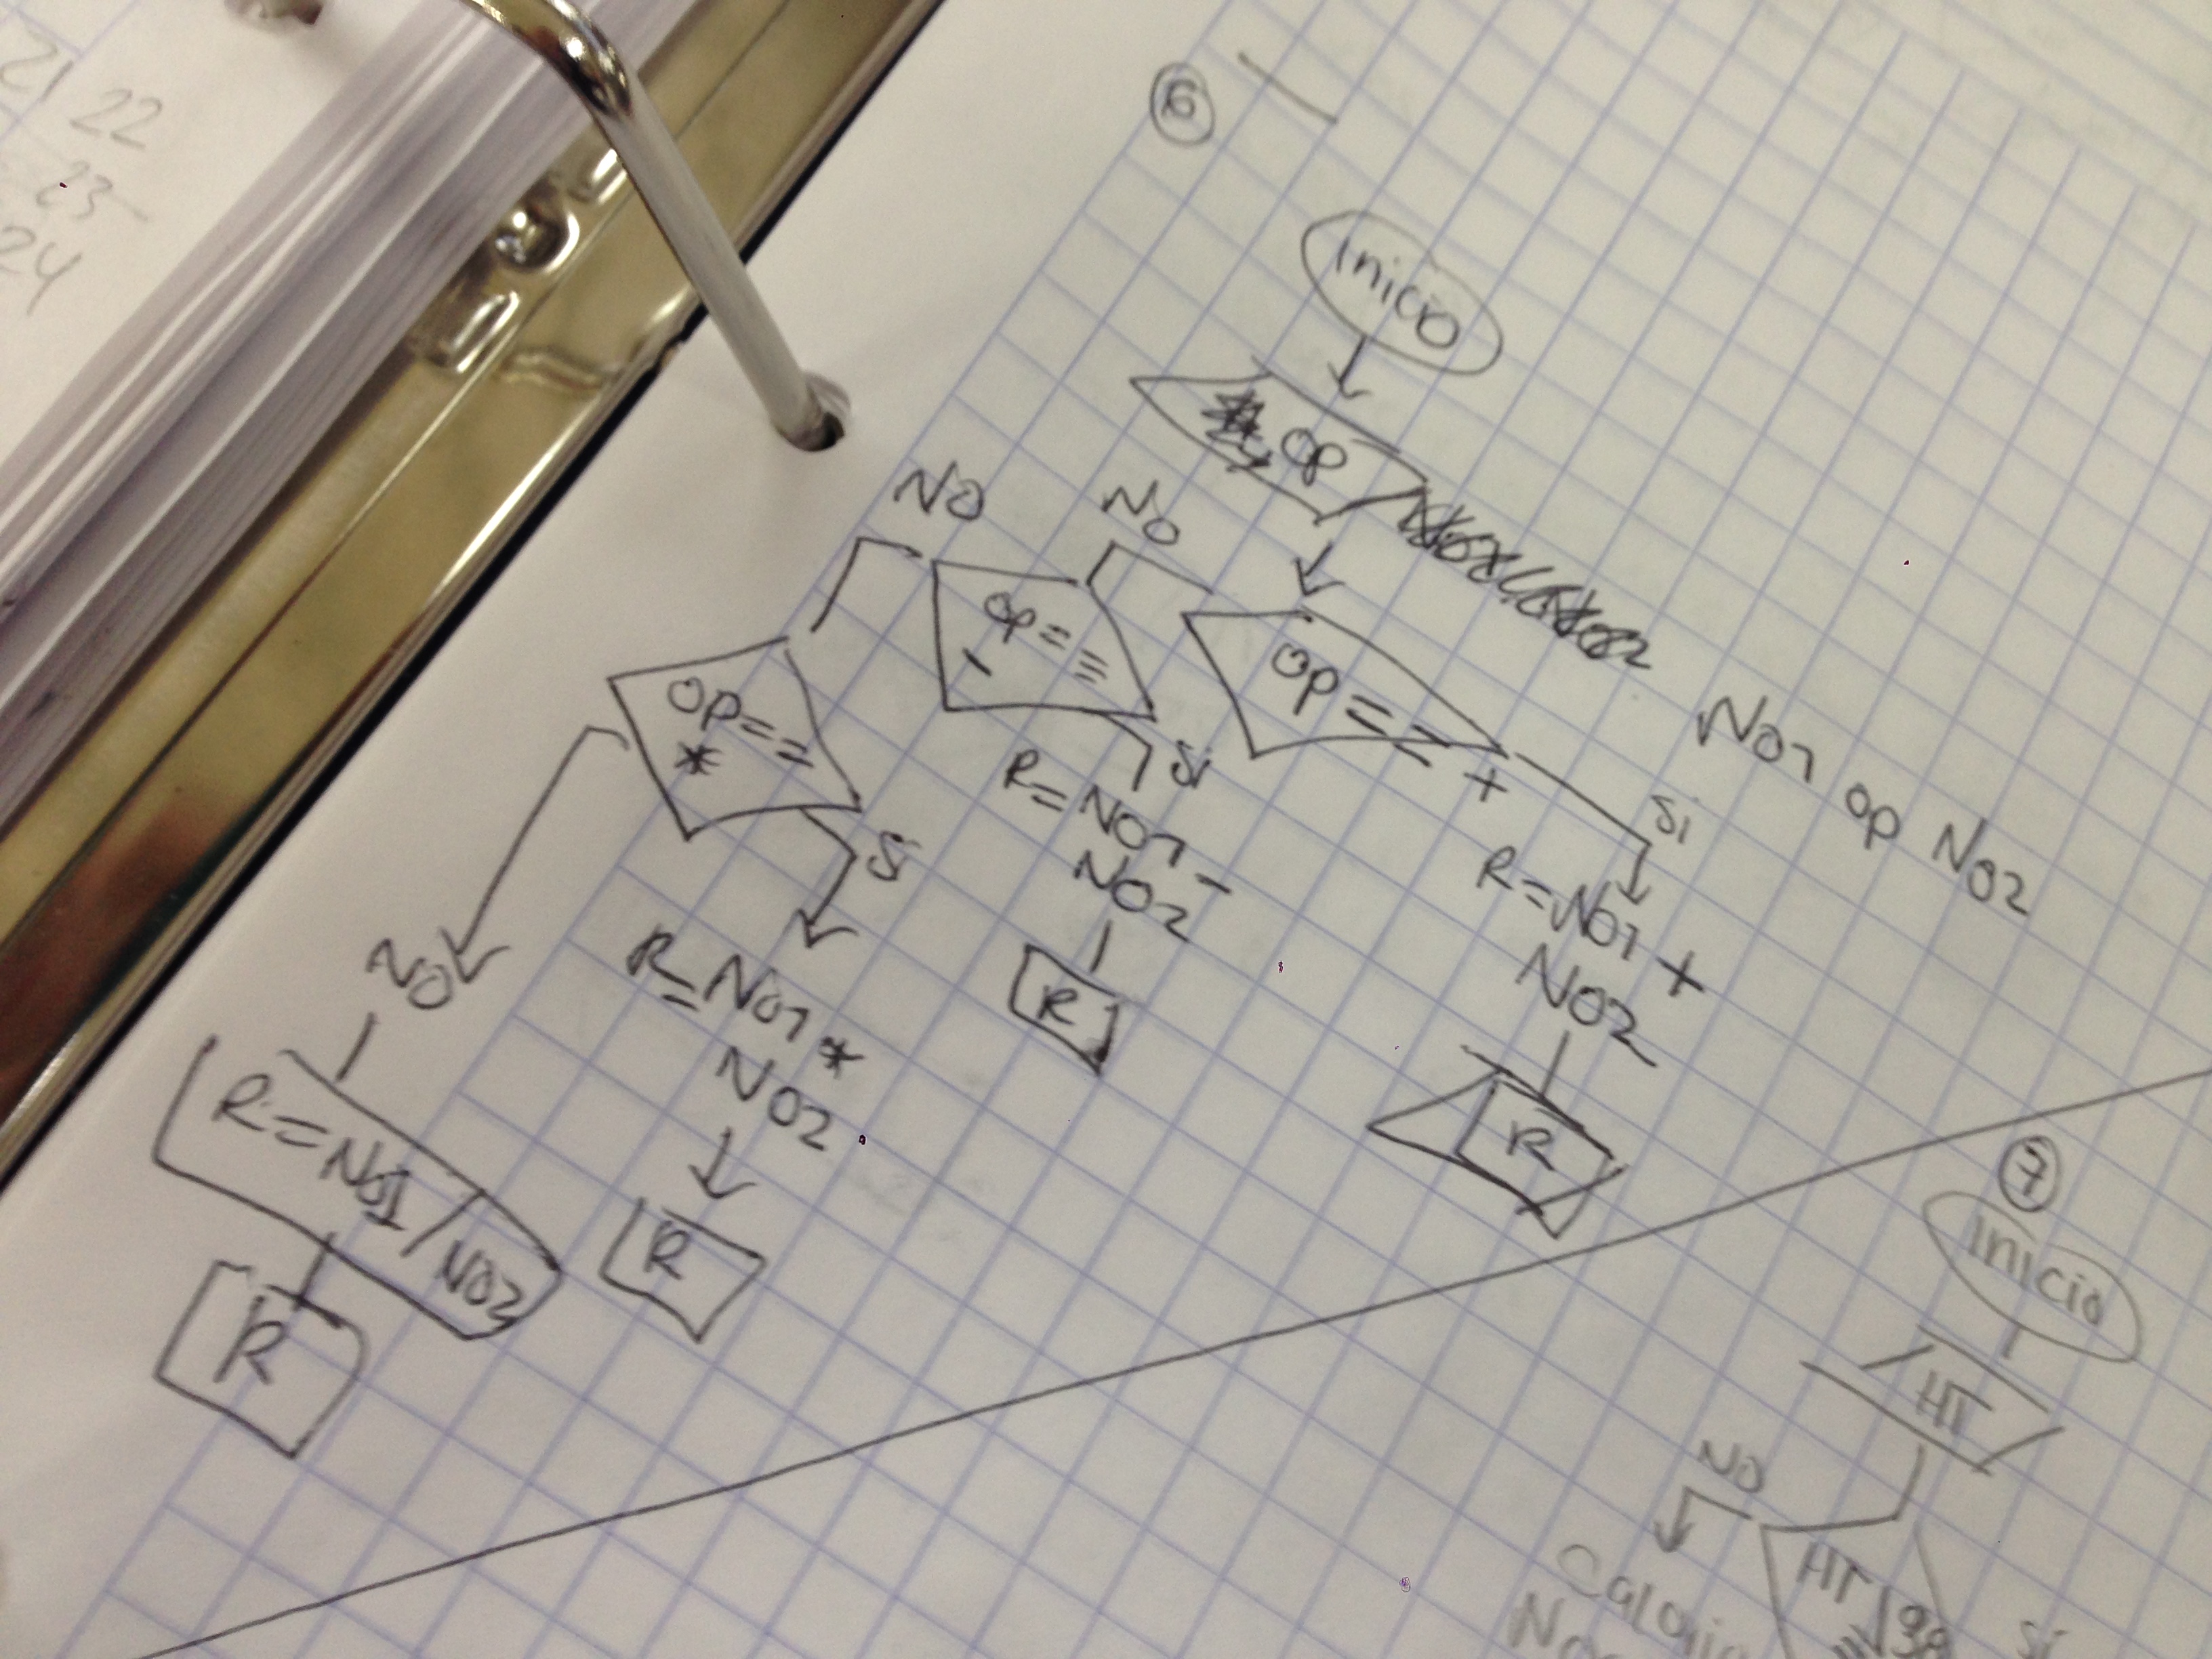 6
Inicio
Op
No1 op No2
Op == +
Si
R=No1 +
No2
R
No
Op ==
-
Si
R=No1 -
No2
R
No
Op ==
*
Si
R=No1 *
No2
R
No
R=No1/No2
R
7
Inicio
HT
HT
No
Si
21
22
23
24